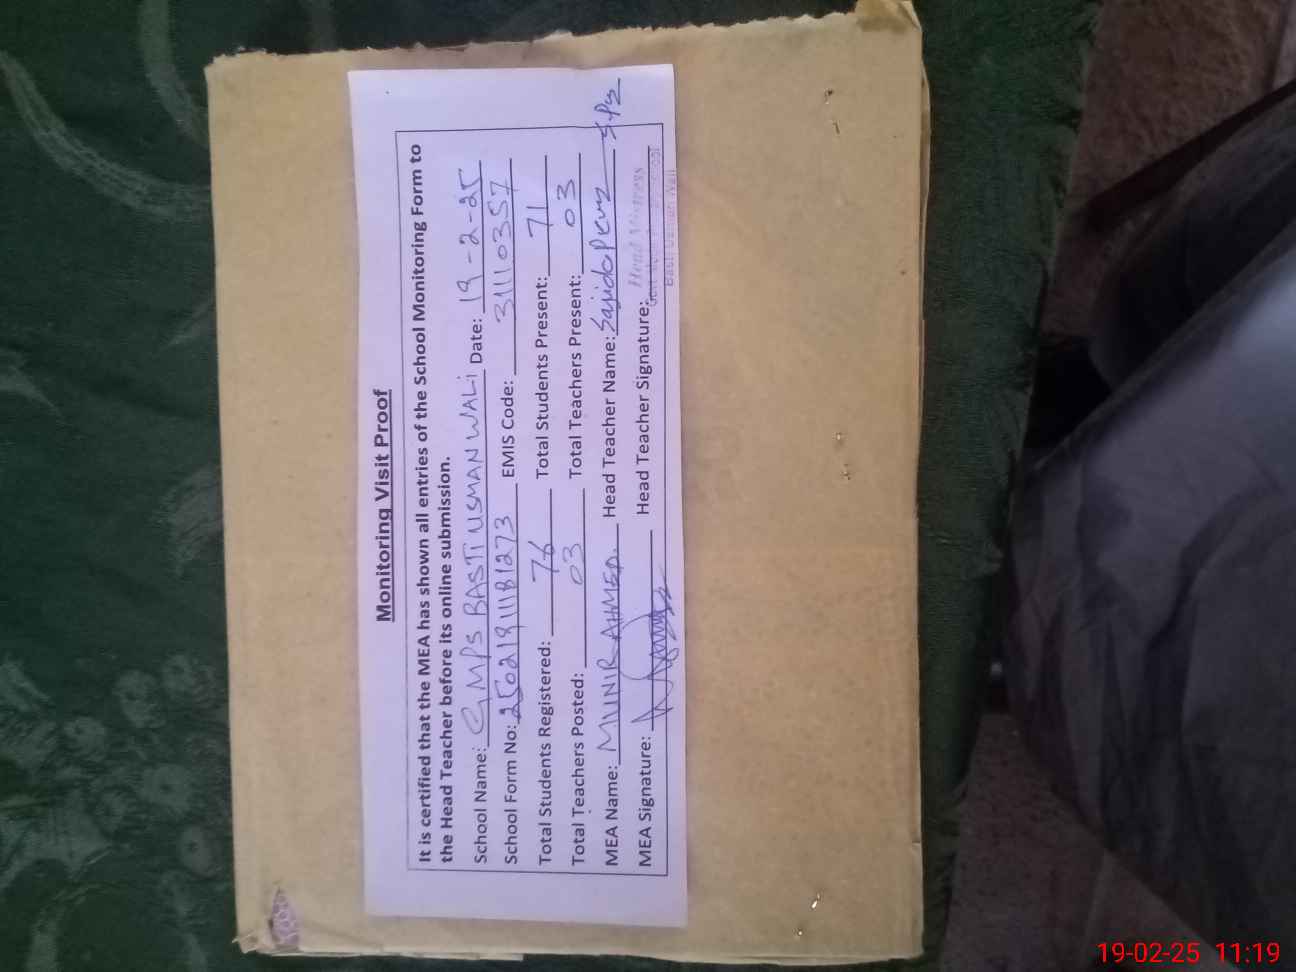 Monitoring Visit Proof
It is certified that the MEA has shown all entries of the School Monitoring Form to
the Head Teacher before its online submission.
School Name: GMPS BASTI USMAN WALI Date: 19-2-25
School Form No: 250219111181273 EMIS Code: 31110357
Total Students Registered: 76 Total Students Present: 71
Total Teachers Posted: 03 Total Teachers Present: 03
MEA Name: MUNIR AHMED. Head Teacher Name: Sajida
MEA Signature: Head Teacher Signature:
Head Mistress
19-02-25 11:19